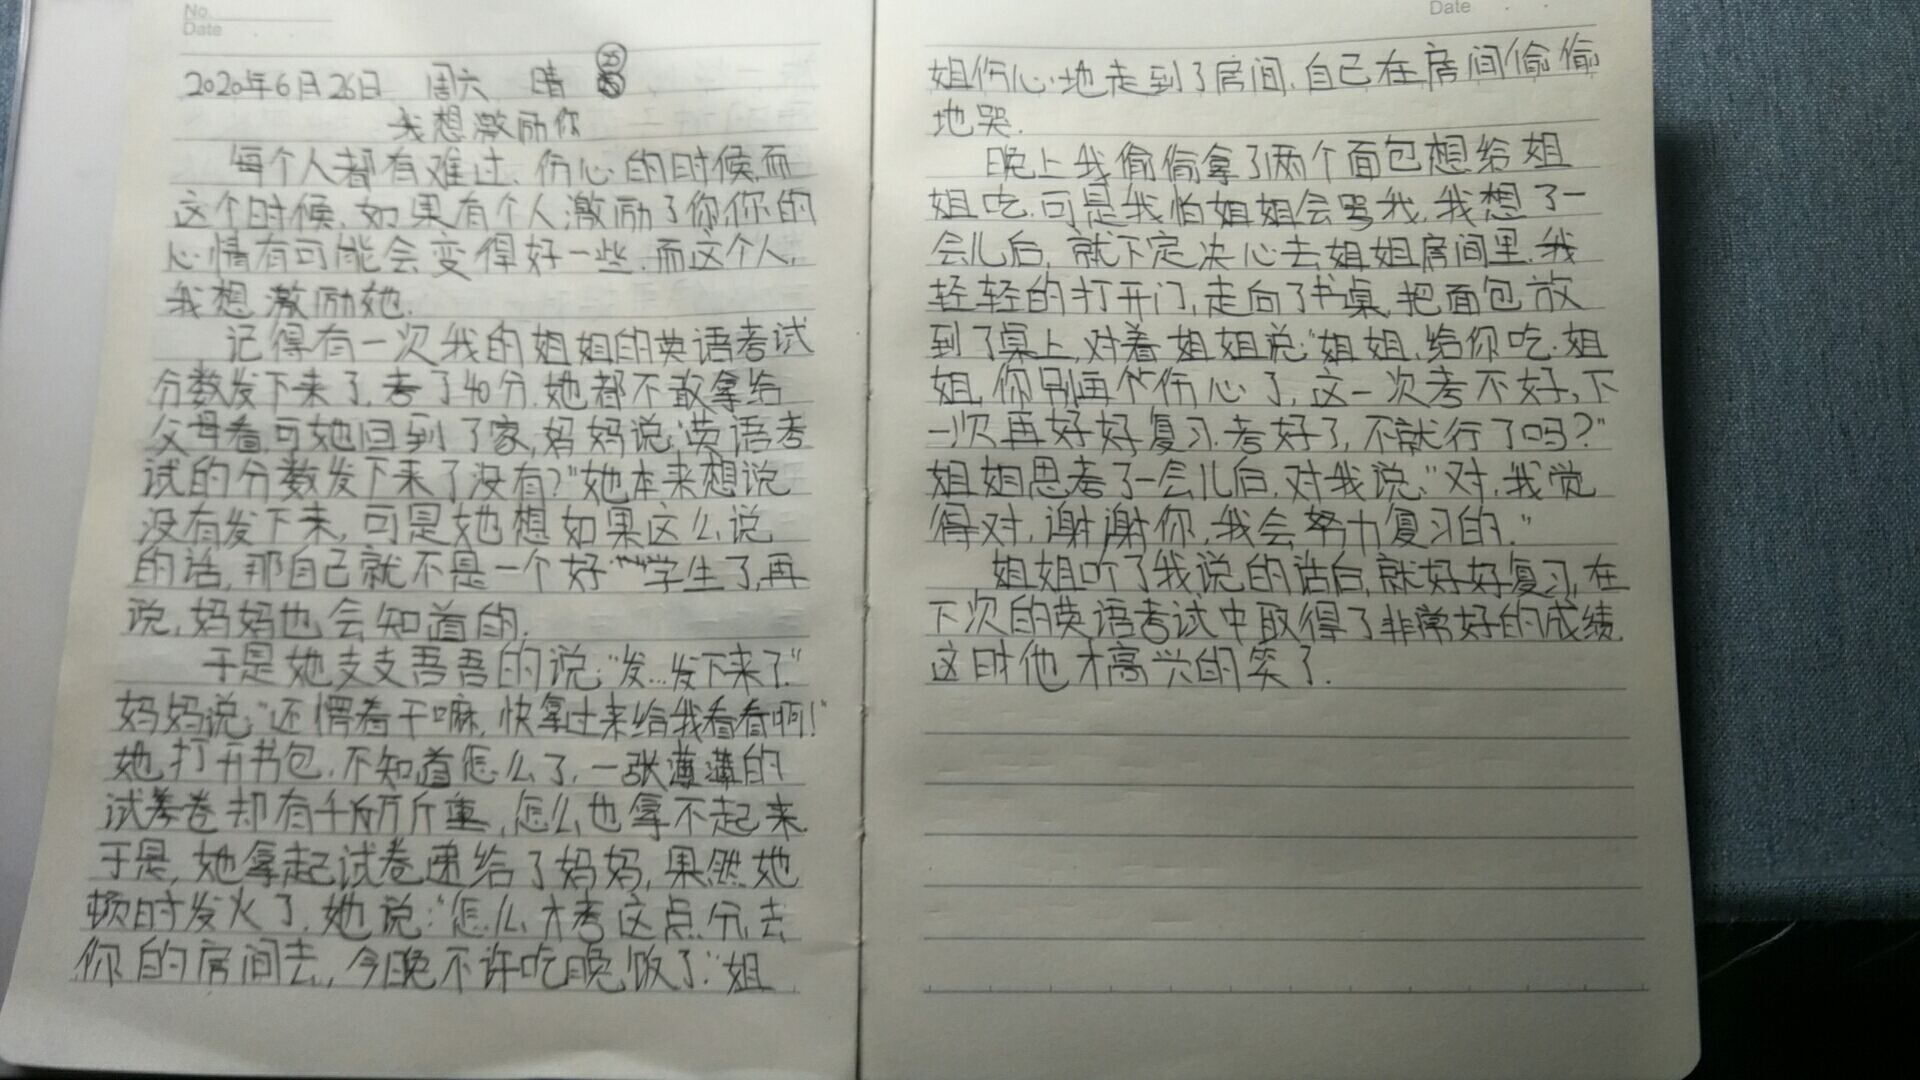 No.
Date
2020年6月26日 周六 晴 25
我想激励你
每个人都有难过、伤心的时候,而
这个时候,如果有个人激励了你你的
心情有可能会变得好一些.而这个人,
我想激励她.
记得有一次我的姐姐的英语考试
分数发下来了,考了40分.她都不敢拿给
父母看.可她回到了家,妈妈说:"英语考
试的分数发下来了没有?"她本来想说
没有发下来,可是她想如果这么说
的话,那自己就不是一个好学生了,再
说,妈妈也会知道的.
于是她支支吾吾的说:"发…发下来了."
妈妈说:"还愣着干嘛,快拿过来给我看看啊!"
她打开书包,不知道怎么了,一张薄薄的
试卷却有千斤万斤重,怎么也拿不起来
于是,她拿起试卷递给了妈妈,果然她
顿时发火了,她说:"怎么才考这点分,去
你的房间去,今晚不许吃晚饭了."姐
Date
姐伤心地走到了房间,自己在房间偷偷
地哭.
晚上我偷偷拿了两个面包想给姐
姐吃.可是我怕姐姐会骂我,我想了一
会儿后,就下定决心去姐姐房间里.我
轻轻的打开门,走向了书桌,把面包放
到了桌上,对着姐姐说:"姐姐,给你吃.姐
姐,你别再伤心了,这一次考不好,下
一次再好好复习.考好了,不就行了吗?"
姐姐思考了一会儿后,对我说:"对,我觉
得对,谢谢你,我会努力复习的."
姐姐听了我说的话后,就好好复习,在
下次的英语考试中取得了非常好的成绩.
这时他才高兴的笑了.